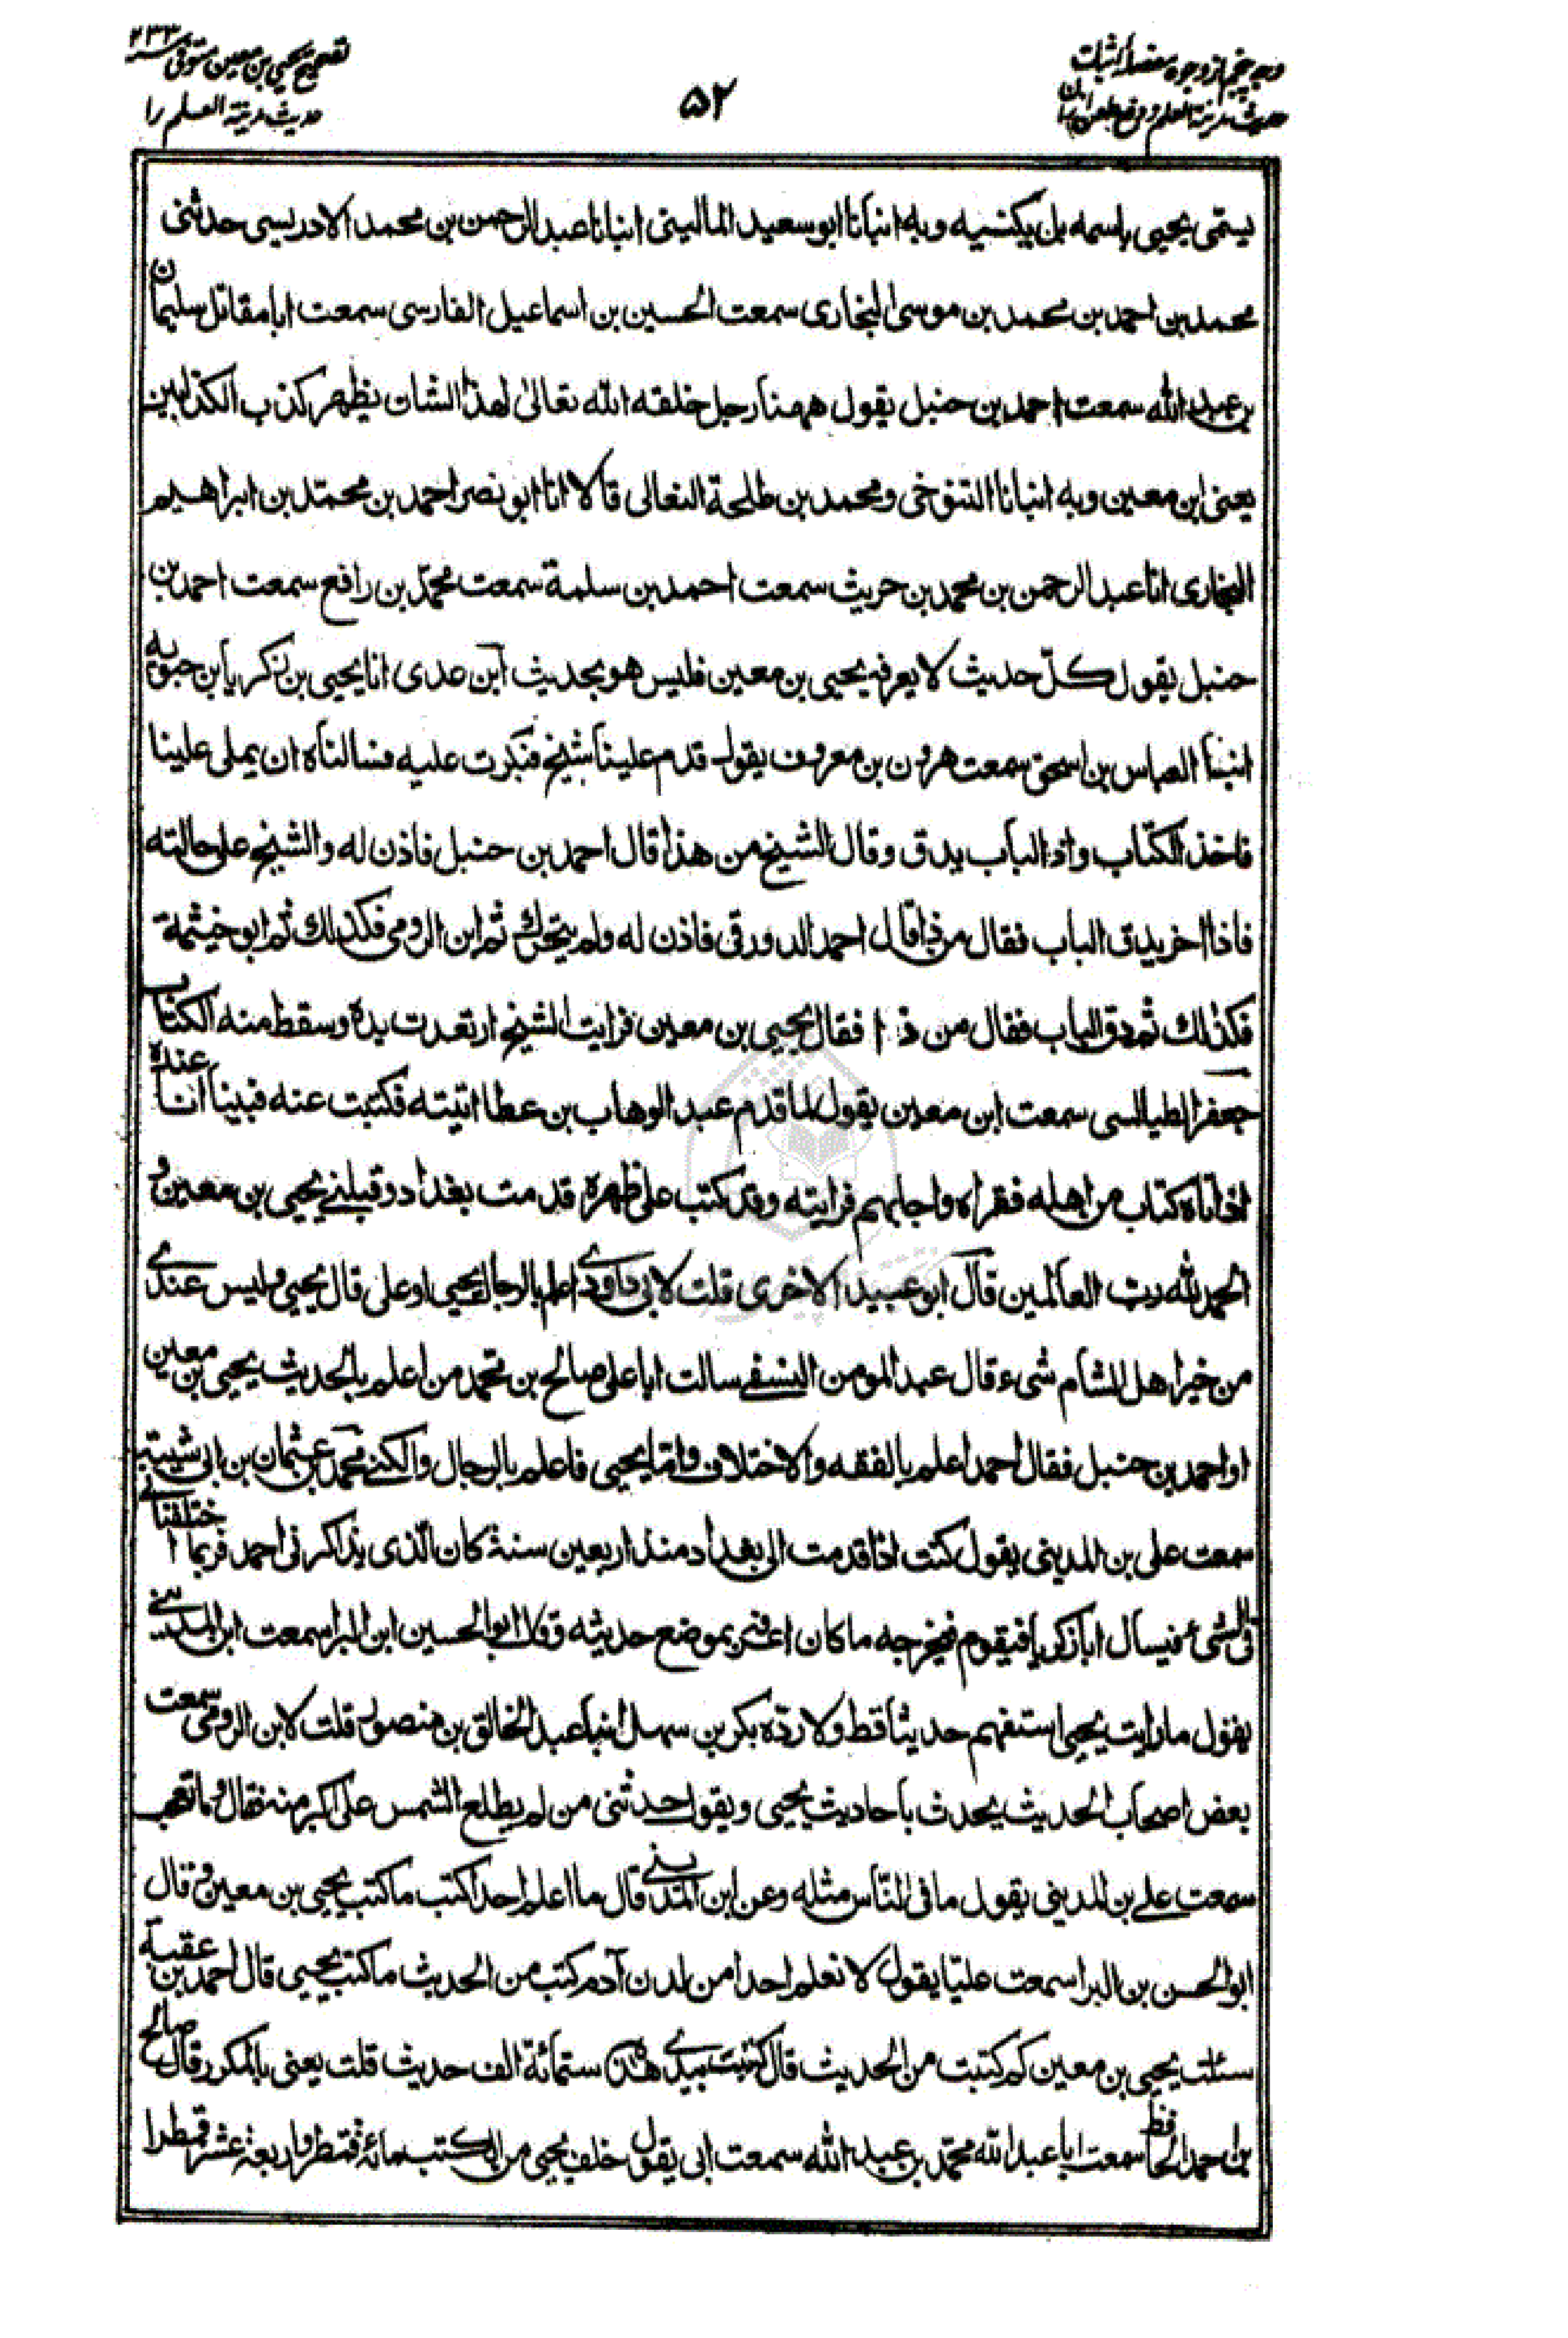 وجه پنجم از وجوه مفصله اثبات
حدیث مدینة العلم و دفع طعن
۵۲
تصحیح یحیی بن معین متوفی سنه ۲۳۳
حدیث مدینة العلم را
یسمّی یحیی باسمه بل یکنیه وبه انبانا ابو سعید المالینی انبانا عبد الرحمن بن محمد الادریسی حدثنی
محمد بن احمد بن محمد بن موسی البخاری سمعت الحسین بن اسماعیل الفارسی سمعت ابا مقاتل سلیمان
بن عبد الله سمعت احمد بن حنبل یقول ههنا رجل خلقه الله تعالیٰ لهذا الشان یظهر کذب الکذابین
یعنی ابن معین وبه انبانا التنوخی ومحمد بن طلحة النعالی قالا انا ابو نصر احمد بن محمّد بن ابراهیم
البخاری انا عبد الرحمن بن محمد بن حریث سمعت احمد بن سلمة سمعت محمّد بن رافع سمعت احمد بن
حنبل یقول کلّ حدیث لا یعرفه یحیی بن معین فلیس هو بحدیث ابن عدی انا یحیی بن زکریا بن حیویه
انبنا العباس بن اسحق سمعت هرون بن معروف یقول قدم علینا شیخ فبکرت علیه فسالناه ان یملی علینا
فاخذ الکتاب واذ الباب یدق وقال الشیخ من هذا قال احمد بن حنبل فاذن له والشیخ علی حالته
فاذا اخر یدق الباب فقال من ذا قال احمد الدورقی فاذن له ولم یتحرك ثم ابن الرومی فکذلك ثم ابو خیثمة
فکذلك ثم دق الباب فقال من ذا فقال یحیی بن معین فرایت الشیخ ارتعدت یده وسقط منه الکتاب
جعفر الطیالسی سمعت ابن معین یقول لما قدم عبد الوهاب بن عطا اتیته فکتبت عنه فبینا انا عنده
اذ اتاه کتاب من اهله فقراه واجابهم فرایته وقد کتب علی ظهره قدمت بغداد وقبلنی یحیی بن معین و
الحمد لله رب العالمین قال ابو عبید الاخری قلت لابی داود ای اعلم بالرجال یحیی او علی قال یحیی ولیس عندی
من خبر اهل الشام شیء قال عبد المومن النسفی سالت ابا علی صالح بن محمد من اعلم بالحدیث یحیی بن معین
او احمد بن حنبل فقال احمد اعلم بالفقه والاختلاف وامّا یحیی فاعلم بالرجال والکنی محمّد بن عثمان بن ابی شیبة
سمعت علی بن المدینی یقول کنت اذا قدمت الی بغداد منذ اربعین سنة کان الّذی یذاکرنی احمد فربما اختلفنا
فی الشیء فیسال ابا زکریا فیقوم فیخرجه ما کان اعرفه بموضع حدیثه وقال ابو الحسین ابن البرا سمعت ابن المدینی
یقول ما رایت یحیی استفهم حدیثا قط ولا ردّه بکر بن سهل انبا عبد الخالق بن منصور قلت لابن الرومی سمعت
بعض اصحاب الحدیث یحدث بأحادیث یحیی ویقول حدثنی من لم یطلع الشمس علی اکبر منه فقال وما تعجب
سمعت علی بن المدینی یقول ما فی النّاس مثله وعن ابن المدینی قال ما اعلم احدا کتب ما کتب یحیی بن معین وقال
ابو الحسن بن البرا سمعت علیّا یقول لا نعلم احدا من لدن آدم کتب من الحدیث ما کتب یحیی قال احمد بن عقبة
سئلت یحیی بن معین کم کتبت من الحدیث قال کتبت بیدی هذه ستمائة الف حدیث قلت یعنی بالمکرر قال صالح
بن احمد الحافظ سمعت ابا عبد الله محمّد بن عبد الله سمعت ابی یقول خلف یحیی من الکتب مائة قمطر واربعة عشر قمطرا